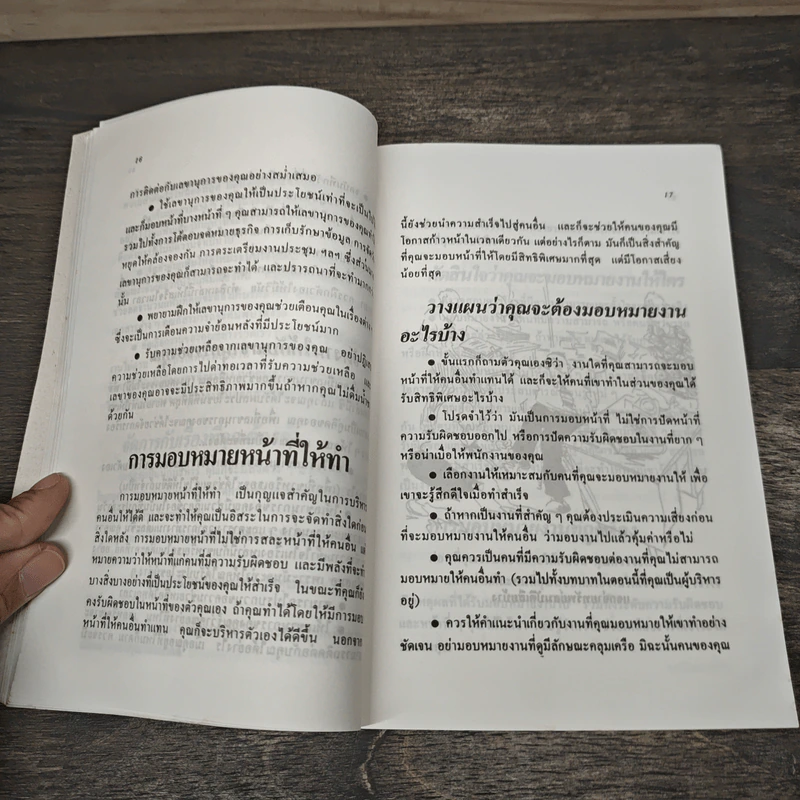 16
การติดต่อกับเลขานุการของคุณอย่างสม่ำเสมอ
● ใช้เลขานุการของคุณให้เป็นประโยชน์เท่าที่จะเป็นไป
และก็มอบหน้าที่บางหน้าที่ ๆ คุณสามารถให้เลขานุการของคุณทำ
รวมไปทั้งการโต้ตอบจดหมายธุรกิจ การเก็บรักษาข้อมูล การจัด
หยุดให้คล้องจองกัน การตระเตรียมงานประชุม ฯลฯ ซึ่งส่วน
เลขานุการของคุณก็สามารถจะทำได้ และปรารถนาที่จะทำมาก
นั้น
● พยายามฝึกให้เลขานุการของคุณช่วยเตือนคุณในเรื่องต่าง
ซึ่งจะเป็นการเตือนความจำย้อนหลังที่มีประโยชน์มาก
● รับความช่วยเหลือจากเลขานุการของคุณ อย่าปฏิเสธ
ความช่วยเหลือโดยการไปตำหนิเวลาที่รับความช่วยเหลือ
เลขาของคุณอาจจะมีประสิทธิภาพมากขึ้นถ้าหากคุณไม่ดื่มน้ำ
ด้วยกัน
การมอบหมายหน้าที่ให้ทำ
การมอบหมายหน้าที่ให้ทำ เป็นกุญแจสำคัญในการบริหาร
คนอื่นให้ได้ดี และจะทำให้คุณเป็นอิสระในการจะจัดทำสิ่งใดก่อน
สิ่งใดหลัง การมอบหมายหน้าที่ไม่ใช่การสละหน้าที่ให้คนอื่น แต่
หมายความว่าให้หน้าที่แก่คนที่มีความรับผิดชอบ และมีพลังที่จะทำ
บางสิ่งบางอย่างที่เป็นประโยชน์ของคุณให้สำเร็จ ในขณะที่คุณก็ยัง
คงรับผิดชอบในหน้าที่ของตัวคุณเอง ถ้าคุณทำได้โดยให้มีการมอบ
หน้าที่ให้คนอื่นทำแทน คุณก็จะบริหารตัวเองได้ดีขึ้น นอกจาก
17
นี้ยังช่วยนำความสำเร็จไปสู่คนอื่น และก็จะช่วยให้คนของคุณมี
โอกาสก้าวหน้าในเวลาเดียวกัน แต่อย่างไรก็ตาม มันก็เป็นสิ่งสำคัญ
ที่คุณจะมอบหน้าที่ให้โดยมีสิทธิพิเศษมากที่สุด แต่มีโอกาสเสี่ยง
น้อยที่สุด
วางแผนว่าคุณจะต้องมอบหมายงาน
อะไรบ้าง
● ขั้นแรกก็ถามตัวคุณเองซิว่า งานใดที่คุณสามารถจะมอบ
หน้าที่ให้คนอื่นทำแทนได้ และก็จะให้คนที่เขาทำในส่วนของคุณได้
รับสิทธิพิเศษอะไรบ้าง
● โปรดจำไว้ว่า มันเป็นการมอบหน้าที่ ไม่ใช่การปัดหน้าที่
ความรับผิดชอบออกไป หรือการปัดความรับผิดชอบในงานที่ยาก ๆ
หรือน่าเบื่อให้พนักงานของคุณ
● เลือกงานให้เหมาะสมกับคนที่คุณจะมอบหมายงานให้ เพื่อ
เขาจะรู้สึกดีใจเมื่อทำสำเร็จ
● ถ้าหากเป็นงานที่สำคัญ ๆ คุณต้องประเมินความเสี่ยงก่อน
ที่จะมอบหมายงานให้คนอื่น ว่ามอบงานไปแล้วคุ้มค่าหรือไม่
● คุณควรเป็นคนที่มีความรับผิดชอบต่องานที่คุณไม่สามารถ
มอบหมายให้คนอื่นทำ (รวมไปทั้งบทบาทในตอนนี้ที่คุณเป็นผู้บริหาร
อยู่)
● ควรให้คำแนะนำเกี่ยวกับงานที่คุณมอบหมายให้เขาทำอย่าง
ชัดเจน อย่ามอบหมายงานที่ดูมีลักษณะคลุมเครือ มิฉะนั้นคนของคุณ